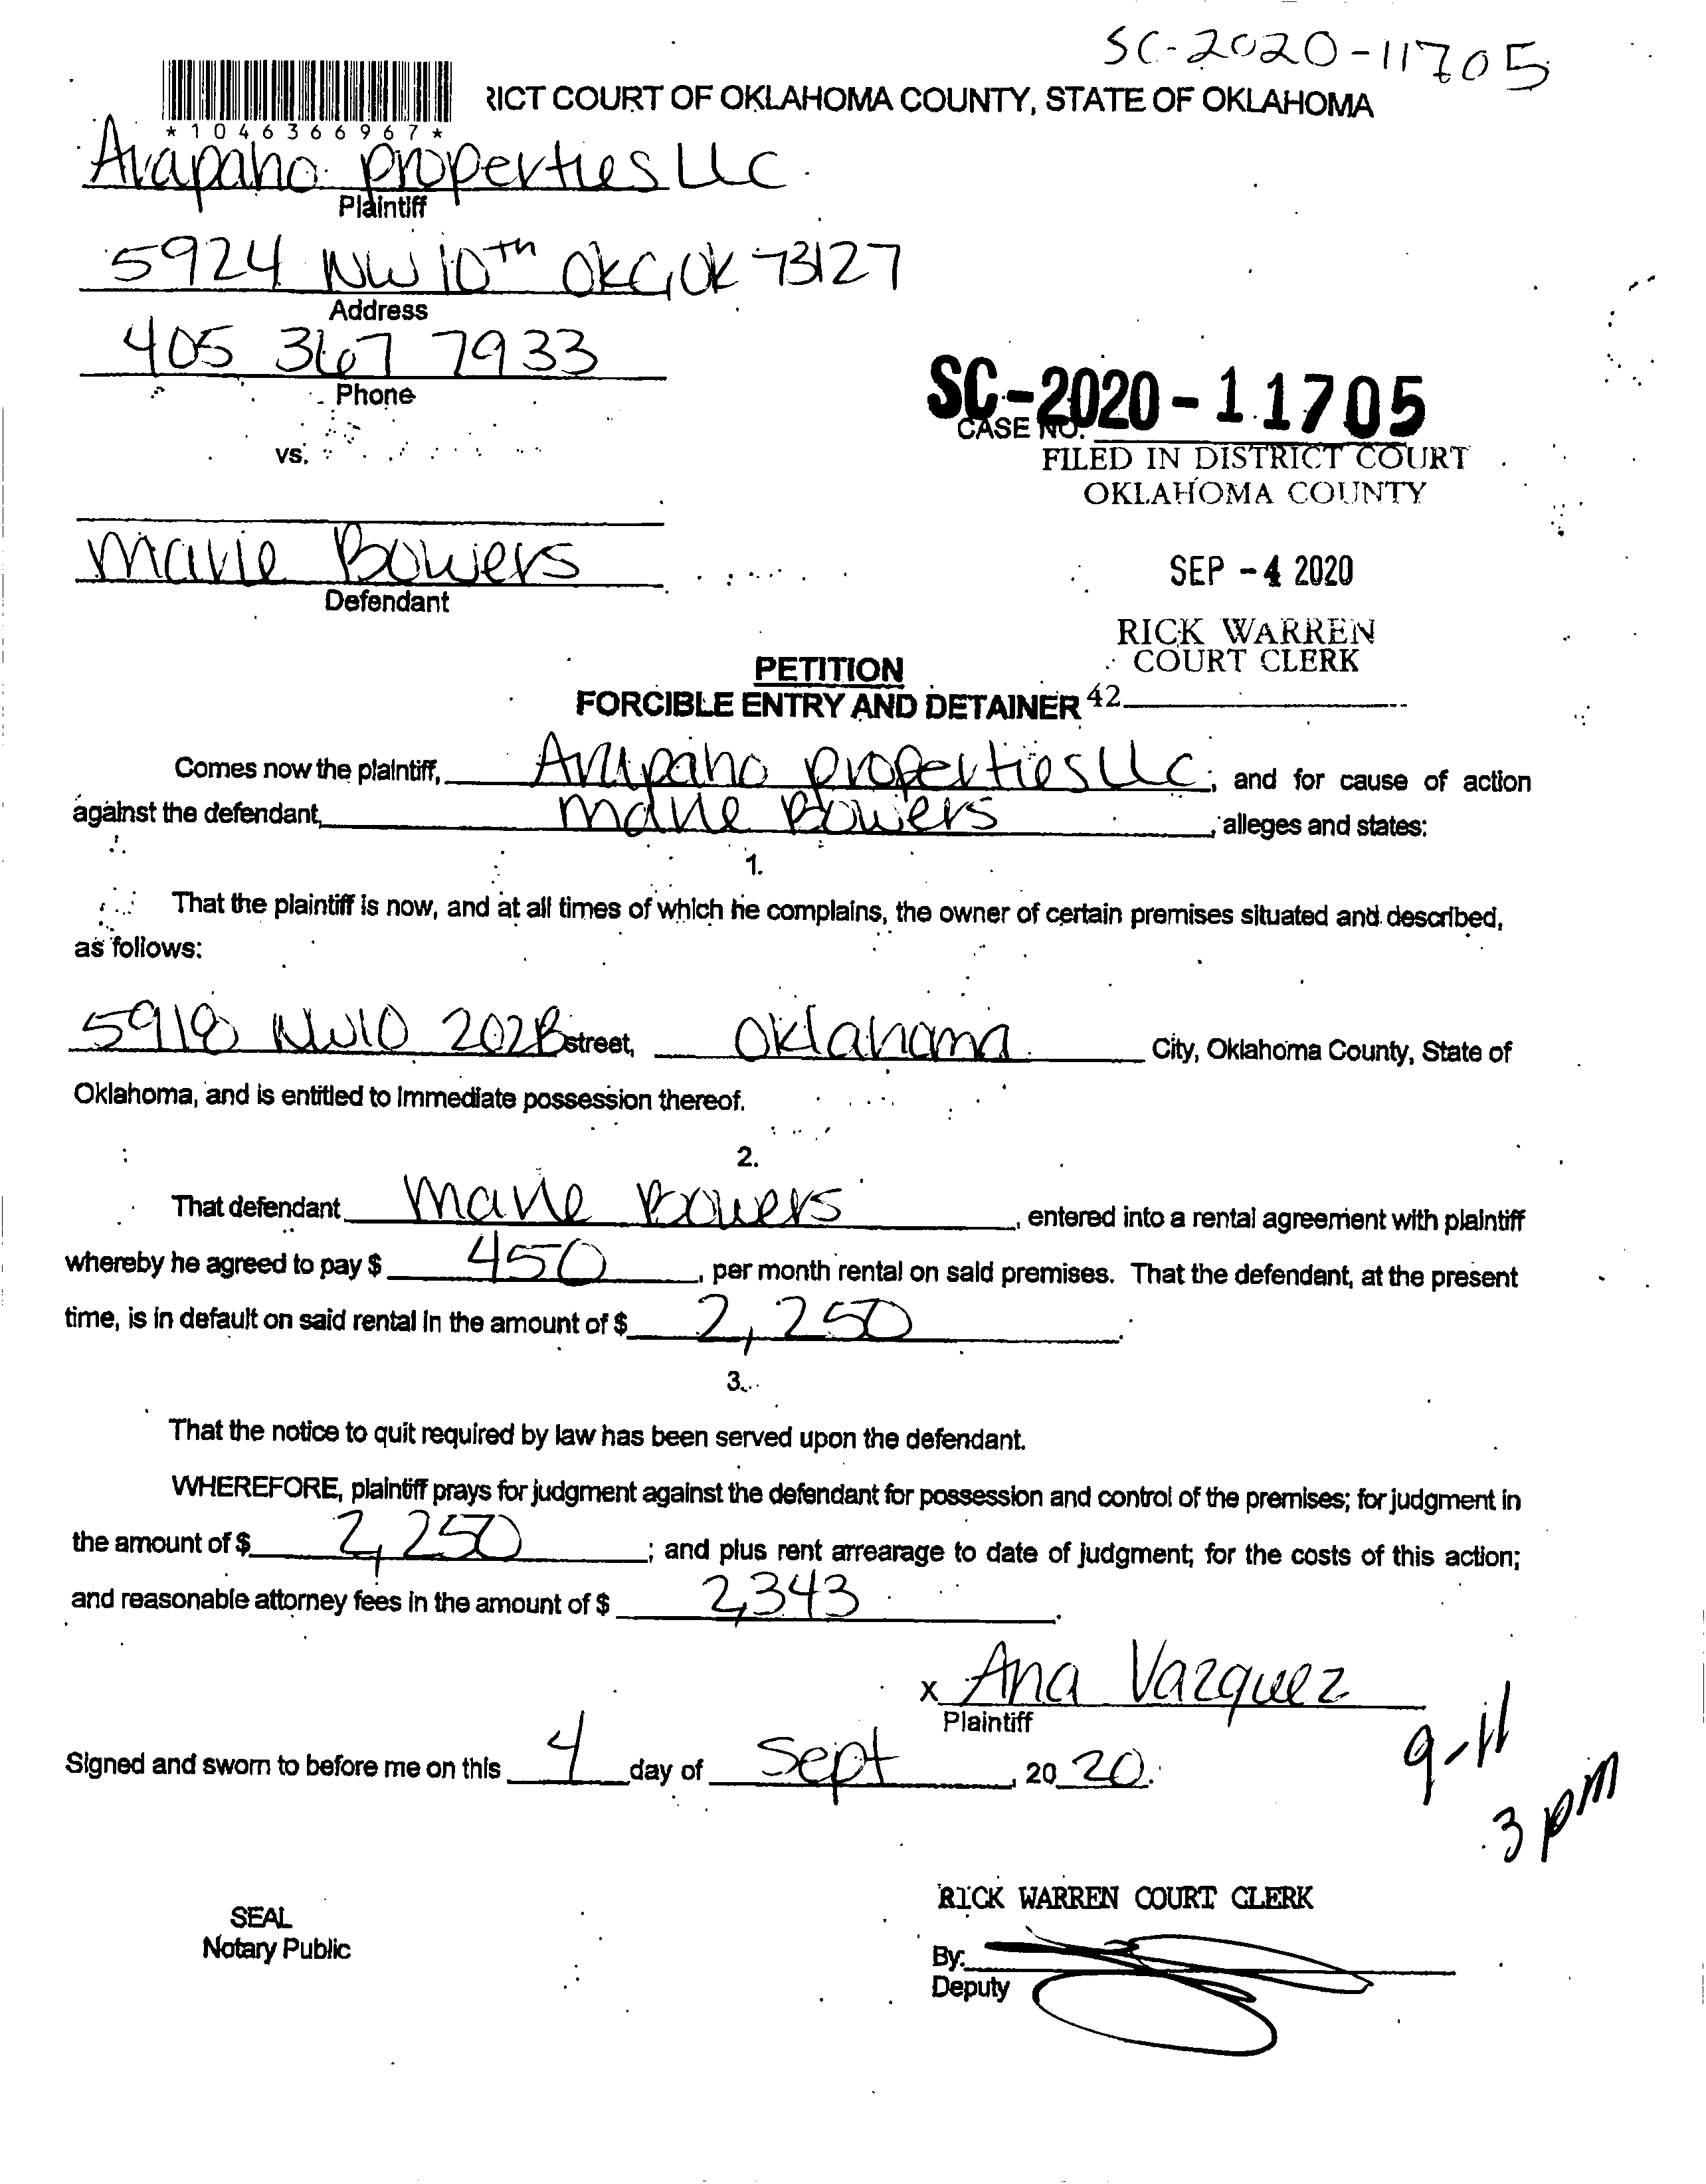 SC-2020-11705
RICT COURT OF OKLAHOMA COUNTY, STATE OF OKLAHOMA
*1046366967*
Arapaho properties LLC
Plaintiff
5924 NW 10TH OKC, OK 73127
Address
405 367 7933
Phone
SC-2020-11705
CASE NO.
vs.
FILED IN DISTRICT COURT
OKLAHOMA COUNTY
Marie Bowers
Defendant
SEP -4 2020
RICK WARREN
COURT CLERK
PETITION
FORCIBLE ENTRY AND DETAINER
42
Comes now the plaintiff, Arapaho properties LLC, and for cause of action
against the defendant, Marie Bowers, alleges and states:
1.
That the plaintiff is now, and at all times of which he complains, the owner of certain premises situated and described,
as follows:
5918 NW10 202B street, Oklahoma City, Oklahoma County, State of
Oklahoma, and is entitled to immediate possession thereof.
2.
That defendant Marie Bowers, entered into a rental agreement with plaintiff
whereby he agreed to pay $ 450, per month rental on said premises. That the defendant, at the present
time, is in default on said rental in the amount of $ 2,250.
3.
That the notice to quit required by law has been served upon the defendant.
WHEREFORE, plaintiff prays for judgment against the defendant for possession and control of the premises; for judgment in
the amount of $ 2,250; and plus rent arrearage to date of judgment; for the costs of this action;
and reasonable attorney fees in the amount of $ 2,343.
x Ana Vazquez
Plaintiff
Signed and sworn to before me on this 4 day of Sept, 20 20.
9-11
3 pm
SEAL
Notary Public
RICK WARREN COURT CLERK
By:
Deputy